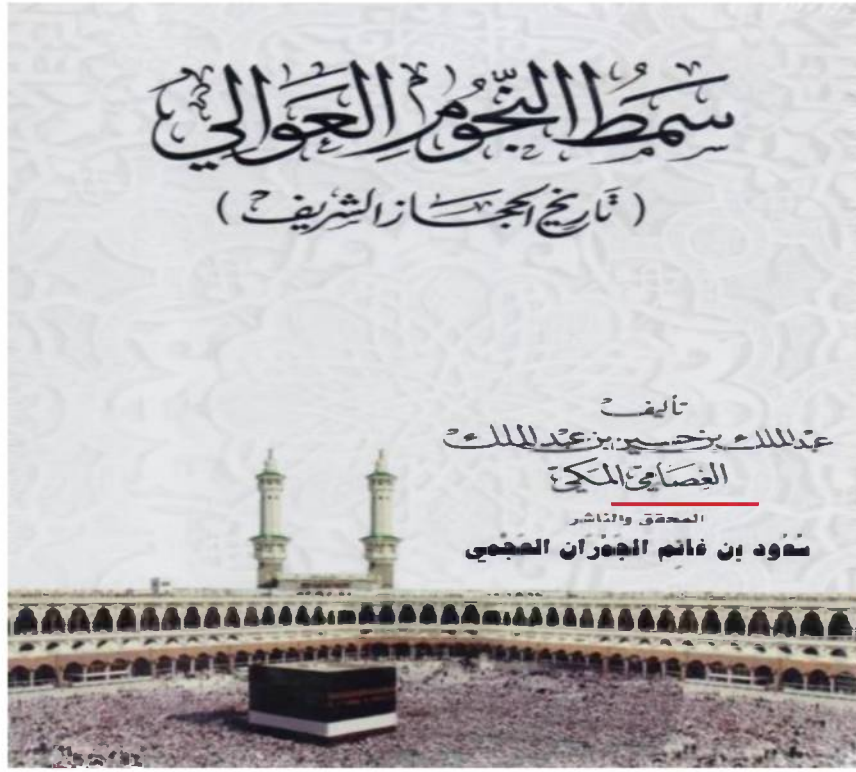 سَمْطُ النُّجُومِ الْعَوَالِي
( تَارِيخ الحِجَاز الشَّرِيف )
تأليف
عبد الملك بن حسين بن عبد الملك
العِصَامِيّ المَكِّيّ
المحقق والناشر
سعود بن غانم الجمران العجمي